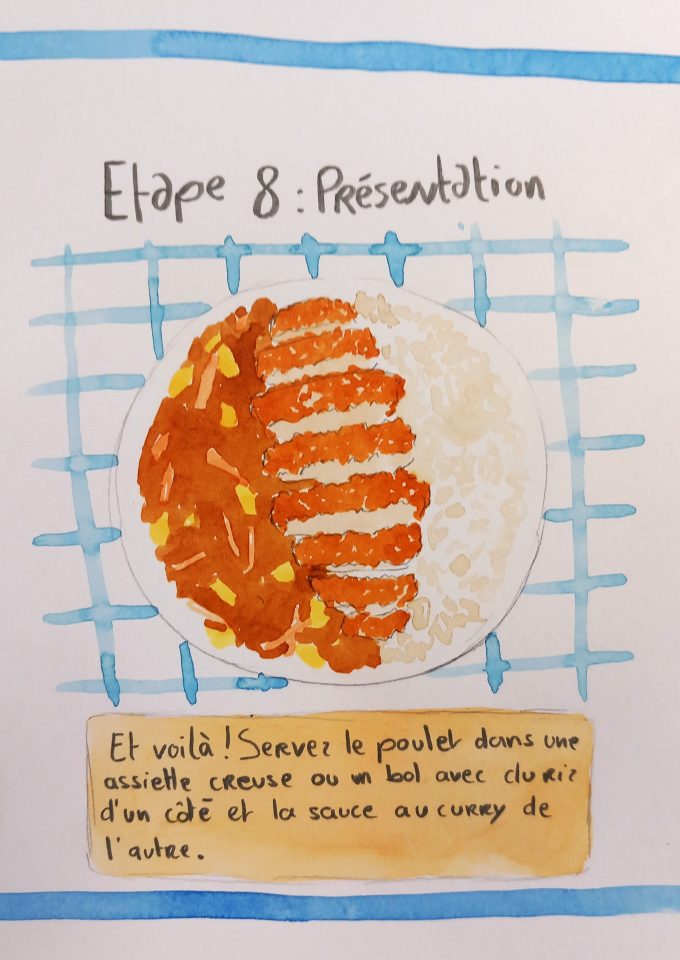 Etape 8 : Présentation
Et voilà ! Servez le poulet dans une
assiette creuse ou un bol avec du riz
d'un côté et la sauce au curry de
l'autre.